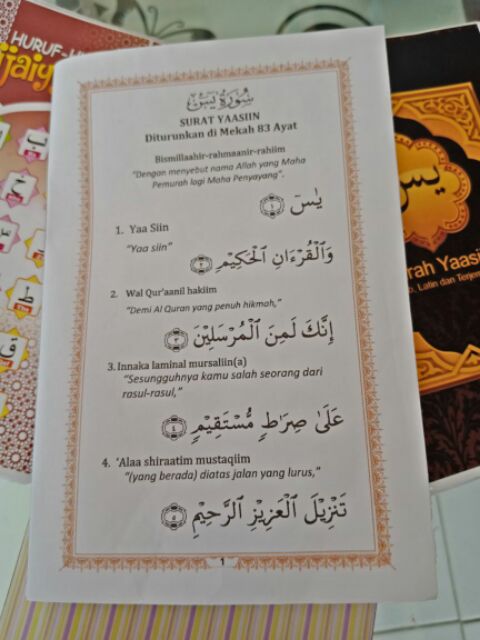 HURUF-H
jaiy
سُورَةُ يٰسٓ
SURAT YAASIIN
Diturunkan di Mekah 83 Ayat
Bismillaahir-rahmaanir-rahiim
"Dengan menyebut nama Allah yang Maha
Pemurah lagi Maha Penyayang".
يٰسٓ ١
1. Yaa Siin
"Yaa siin"
وَالْقُرْءَانِ الْحَكِيْمِ ٢
2. Wal Qur'aanil hakiim
"Demi Al Quran yang penuh hikmah,"
إِنَّكَ لَمِنَ الْمُرْسَلِيْنَ ٣
3. Innaka laminal mursaliin(a)
"Sesungguhnya kamu salah seorang dari
rasul-rasul,"
عَلَىٰ صِرَاطٍ مُّسْتَقِيْمٍ ٤
4. 'Alaa shiraatim mustaqiim
"(yang berada) diatas jalan yang lurus,"
تَنْزِيْلَ الْعَزِيْزِ الرَّحِيْمِ ٥
1
يس
rah Yaasi
, Latin dan Terjem